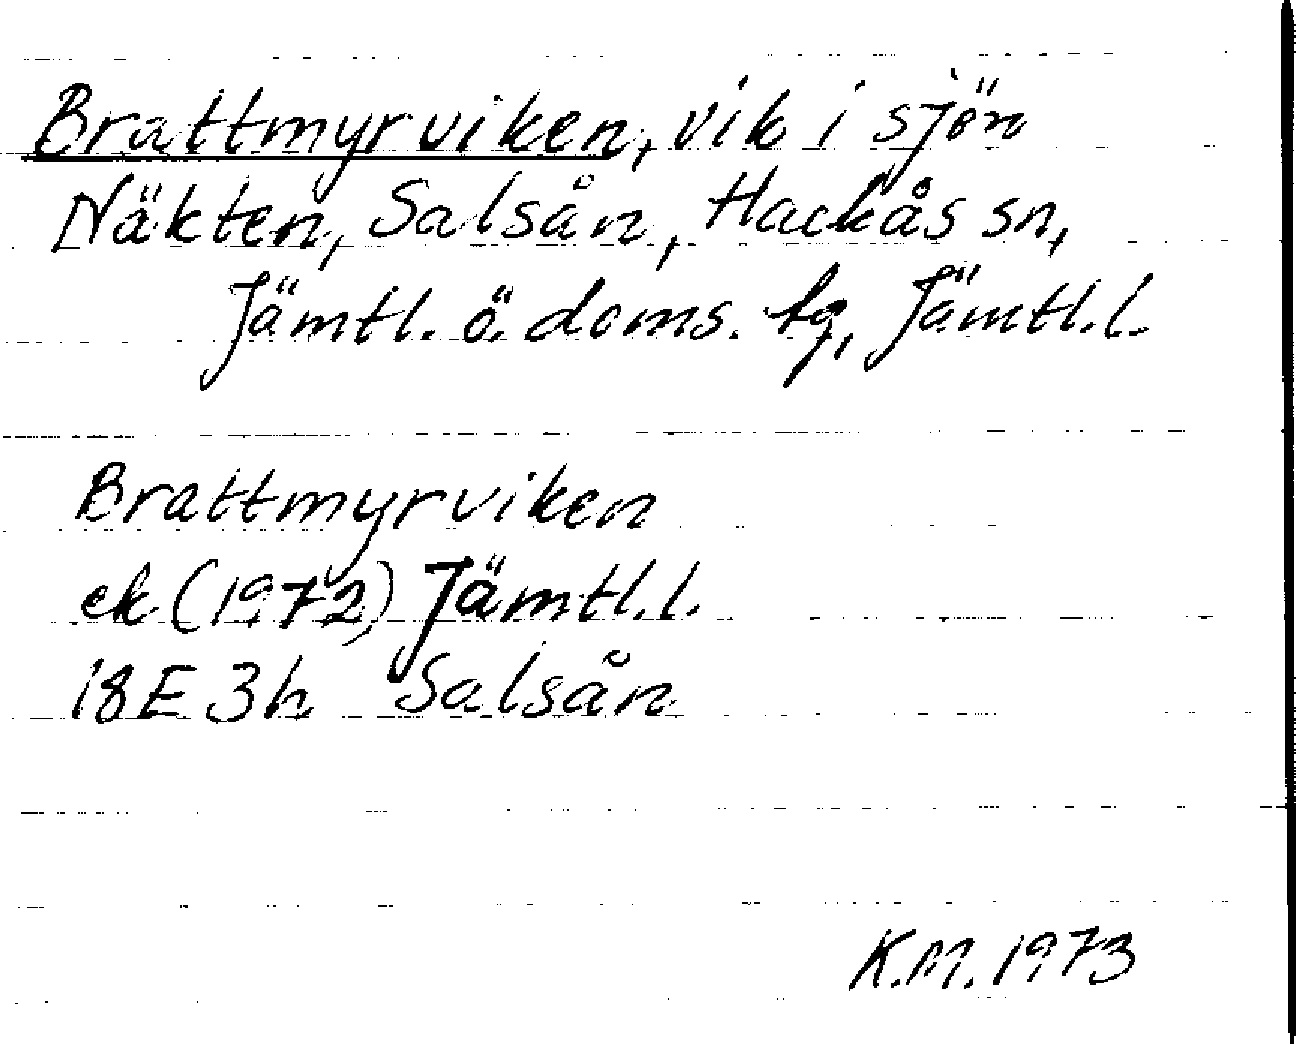 Brattmyrviken, vik i sjön
Näkten, Salsån, Hackås sn,
Jämtl. ö. doms. tg, Jämtl. l.
Brattmyrviken
ek (1972) Jämtl. l.
18E 3h Salsån
K.M. 1973